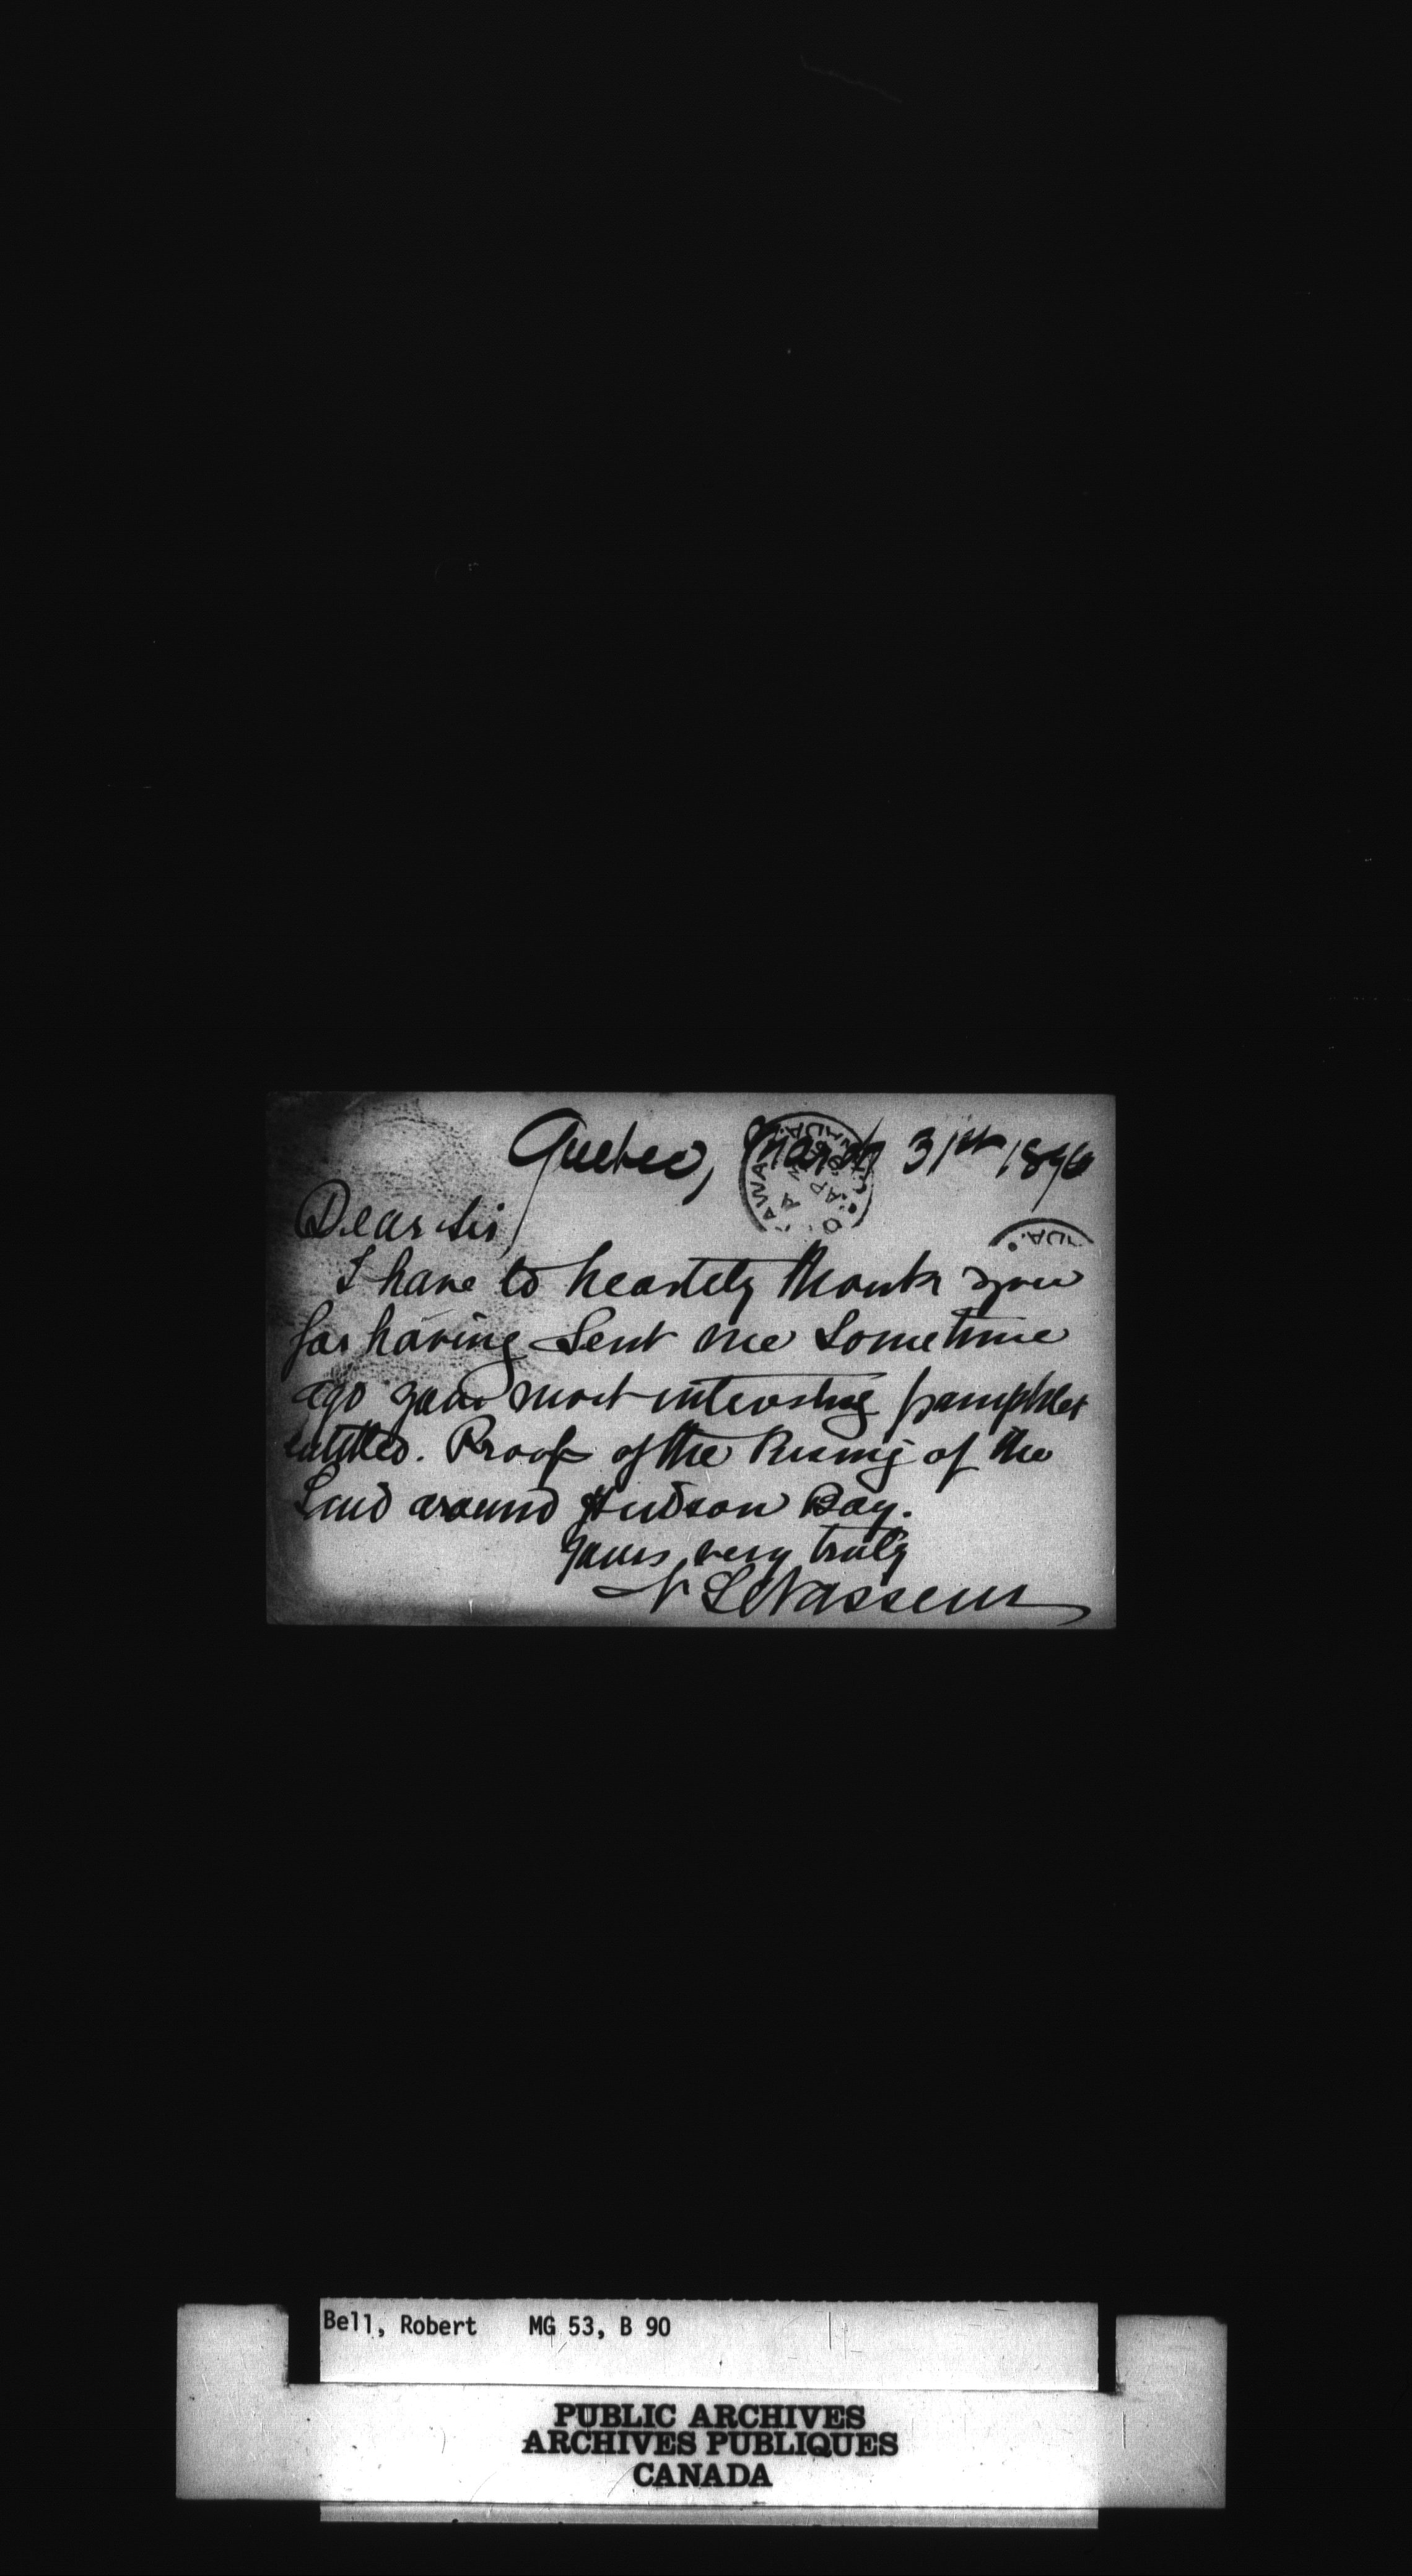 Quebec, March 31st 1896
Dear Sir,
I have to heartely thank you
for having sent me sometime
ago your most interesting pamphlet
entitled. Proofs of the Rising of the
Land around Hudson Bay.
Yours very truly
N LeVasseur
Bell, Robert MG 53, B 90
PUBLIC ARCHIVES
ARCHIVES PUBLIQUES
CANADA